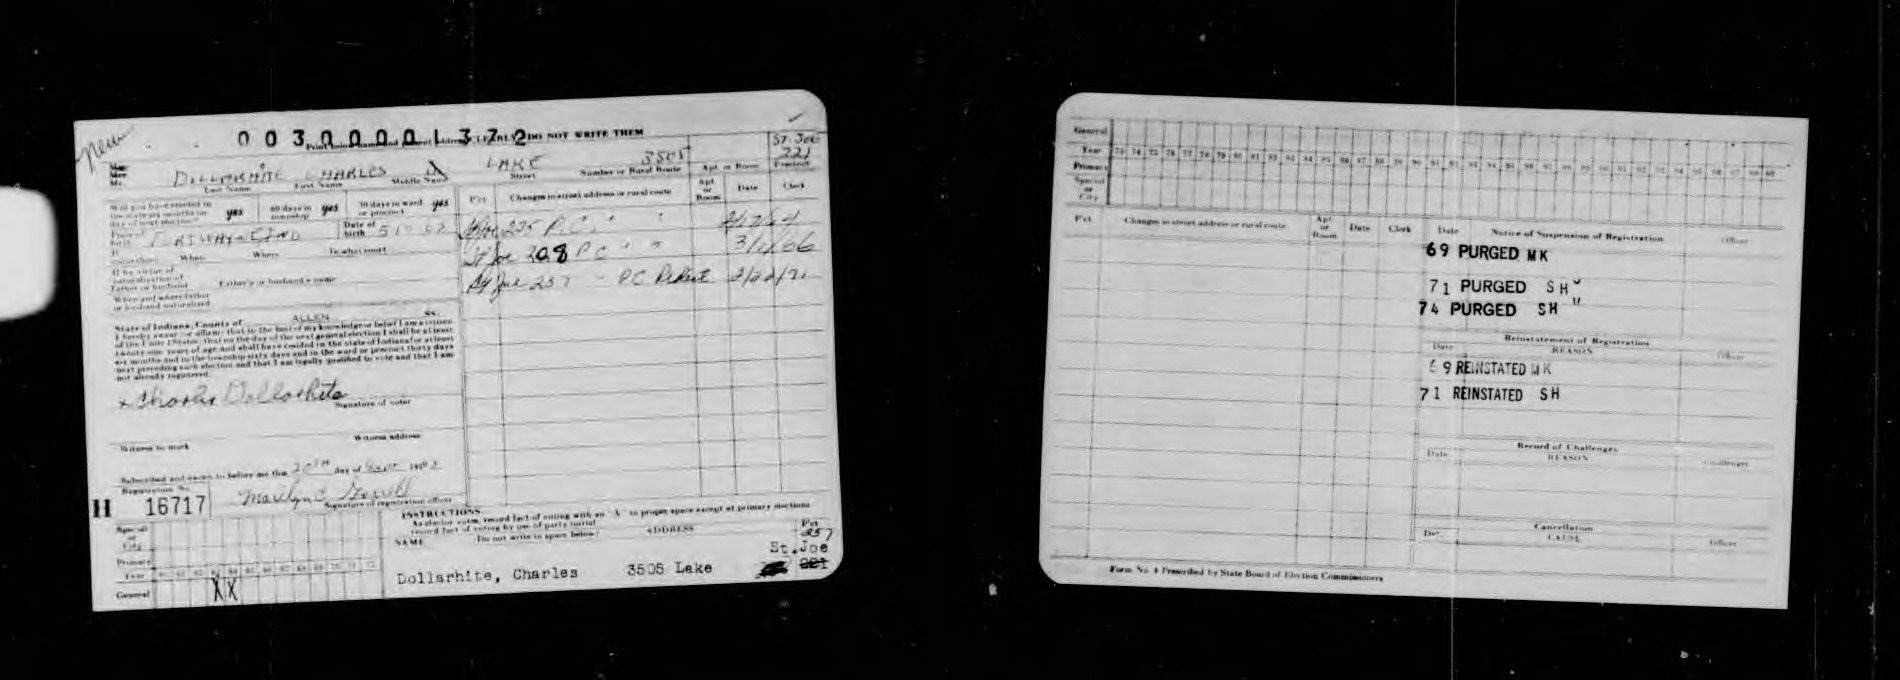 New
00300001372
Print below name and present address CLEARLY DO NOT WRITE THEM
St. Joe
221
DOLLARHITE CHARLES LAKE 3505
Last Name First Name Middle Name Street Number or Rural Route Apt or Room Precinct
Will you have resided in the state six months on day of next election? yes 60 days in township yes 30 days in ward or precinct yes
Place of birth FORT WAYNE IND Date of birth
If naturalized When Where In what court
If by virtue of naturalization of Father or husband Father's or husband's name
When and where father or husband naturalized
Pct Changes in street address or rural route Apt or Room Date Clerk
St Joe 225 P.C. " "
St Joe 208 P C " " 3/1/66
St Joe 257 " PC Redist 2/22/71
State of Indiana, County of ALLEN SS.
I hereby swear or affirm that to the best of my knowledge or belief I am a citizen
of the United States; that on the day of the next general election I shall be at least
twenty-one years of age and shall have resided in the state of Indiana for at least
six months and in the township sixty days and in the ward or precinct thirty days
next preceding such election and that I am legally qualified to vote and that I am
not already registered.
x Charles Dollarhite
Signature of voter
Witness to mark Witness address
Subscribed and sworn to before me this 20TH day of Sept 1963
Registration No.
H 16717 Marilyn C.
Signature of registration officer
INSTRUCTIONS
As elector votes, record fact of voting with an "X" in proper space except at primary elections
record fact of voting by use of party initial
Do not write in space below!
NAME ADDRESS Pct
257
St. Joe
Dollarhite, Charles 3505 Lake 221
Special or City
Primary
Year 60 61 62 63 64 65 66 67 68 69 70 71 72
General X X
General
Year 73 74 75 76 77 78 79 80 81 82 83 84 85 86 87 88 89 90 91 92 93 94 95 96 97 98 99
Primary
Special or City
Pct Changes in street address or rural route Apt or Room Date Clerk
Date Notice of Suspension of Registration Officer
69 PURGED MK
71 PURGED SH
74 PURGED SH
Reinstatement of Registration
Date REASON Officer
69 REINSTATED MK
71 REINSTATED SH
Record of Challenges
Date REASON Challenger
Cancellation
Date CAUSE Officer
Form No. 4 Prescribed by State Board of Election Commissioners